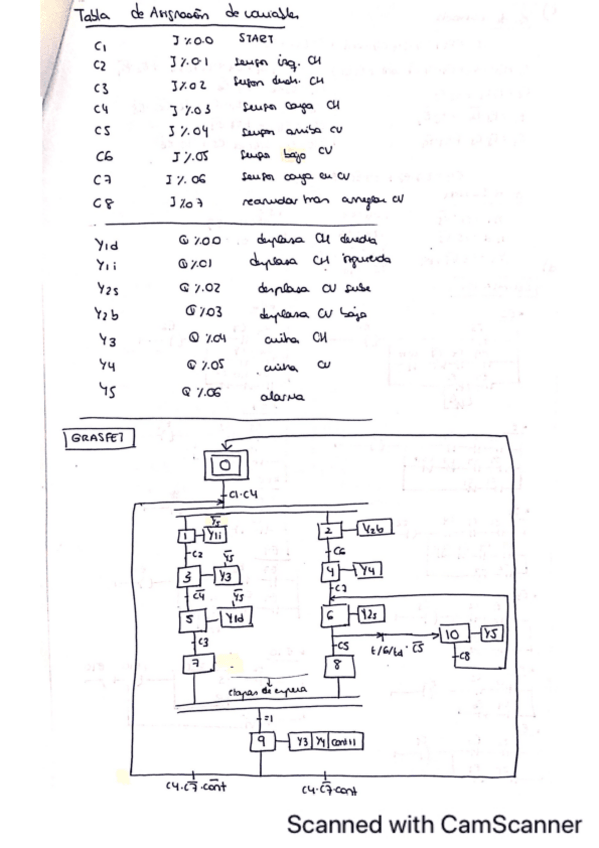 Tabla de Asignación de variables
C1 I%0.0 START
C2 I%0.1 sensor izq. CH
C3 I%0.2 sensor dech. CH
C4 I%0.3 sensor caja CH
C5 I%0.4 sensor arriba CV
C6 I%0.5 sensor bajo CV
C7 I%0.6 sensor caja en CV
C8 I%0.7 reanudar tras arreglar CV
Y1d Q%0.0 desplaza CH derecha
Y1i Q%0.1 desplaza CH izquierda
Y2s Q%0.2 desplaza CV sube
Y2b Q%0.3 desplaza CV baja
Y3 Q%0.4 cinta CH
Y4 Q%0.5 cinta CV
Y5 Q%0.6 alarma
GRAFCET
0
C1·C4
Y̅5̅
1 Y1i 2 Y2b
C2 C6
Y̅5̅
3 Y3 4 Y4
C̅4̅ C7
Y̅5̅
5 Y1d 6 Y2s
C3 C5 t/6/td·C̅5̅ 10 Y5
C8
7 8
etapas de espera
=1
9 Y3 Y4 cont+1
C4·C̅7̅·c̅o̅n̅t̅ C4·C̅7̅·cont
Scanned with CamScanner